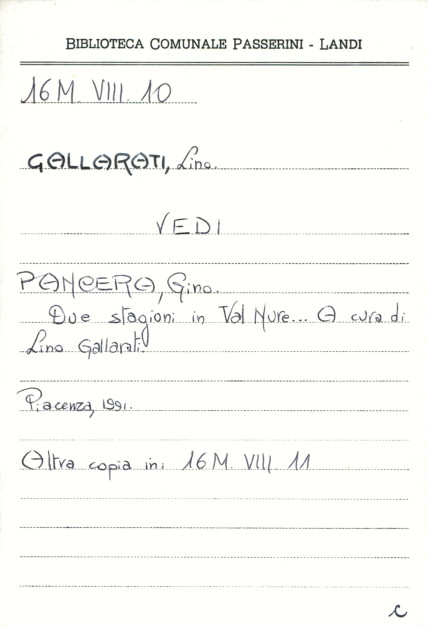 BIBLIOTECA COMUNALE PASSERINI - LANDI
16 M. VIII. 10
GALLARATI, Lino.
VEDI
PANCERA, Gino.
Due stagioni in Val Nure... A cura di
Lino Gallarati.
Piacenza, 1991.
Altra copia in: 16 M. VIII 11
C